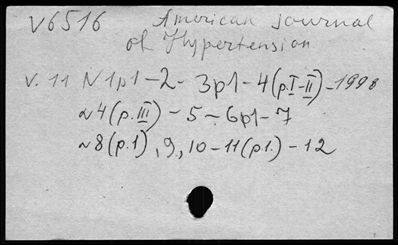 V6516 American Journal
of Hypertension
V. 11 N1p1-2- 3p1-4(p.I-II)-1998
N4(p.III) - 5 - 6p1-7
N8(p.1), 9, 10-11(p1.) - 12